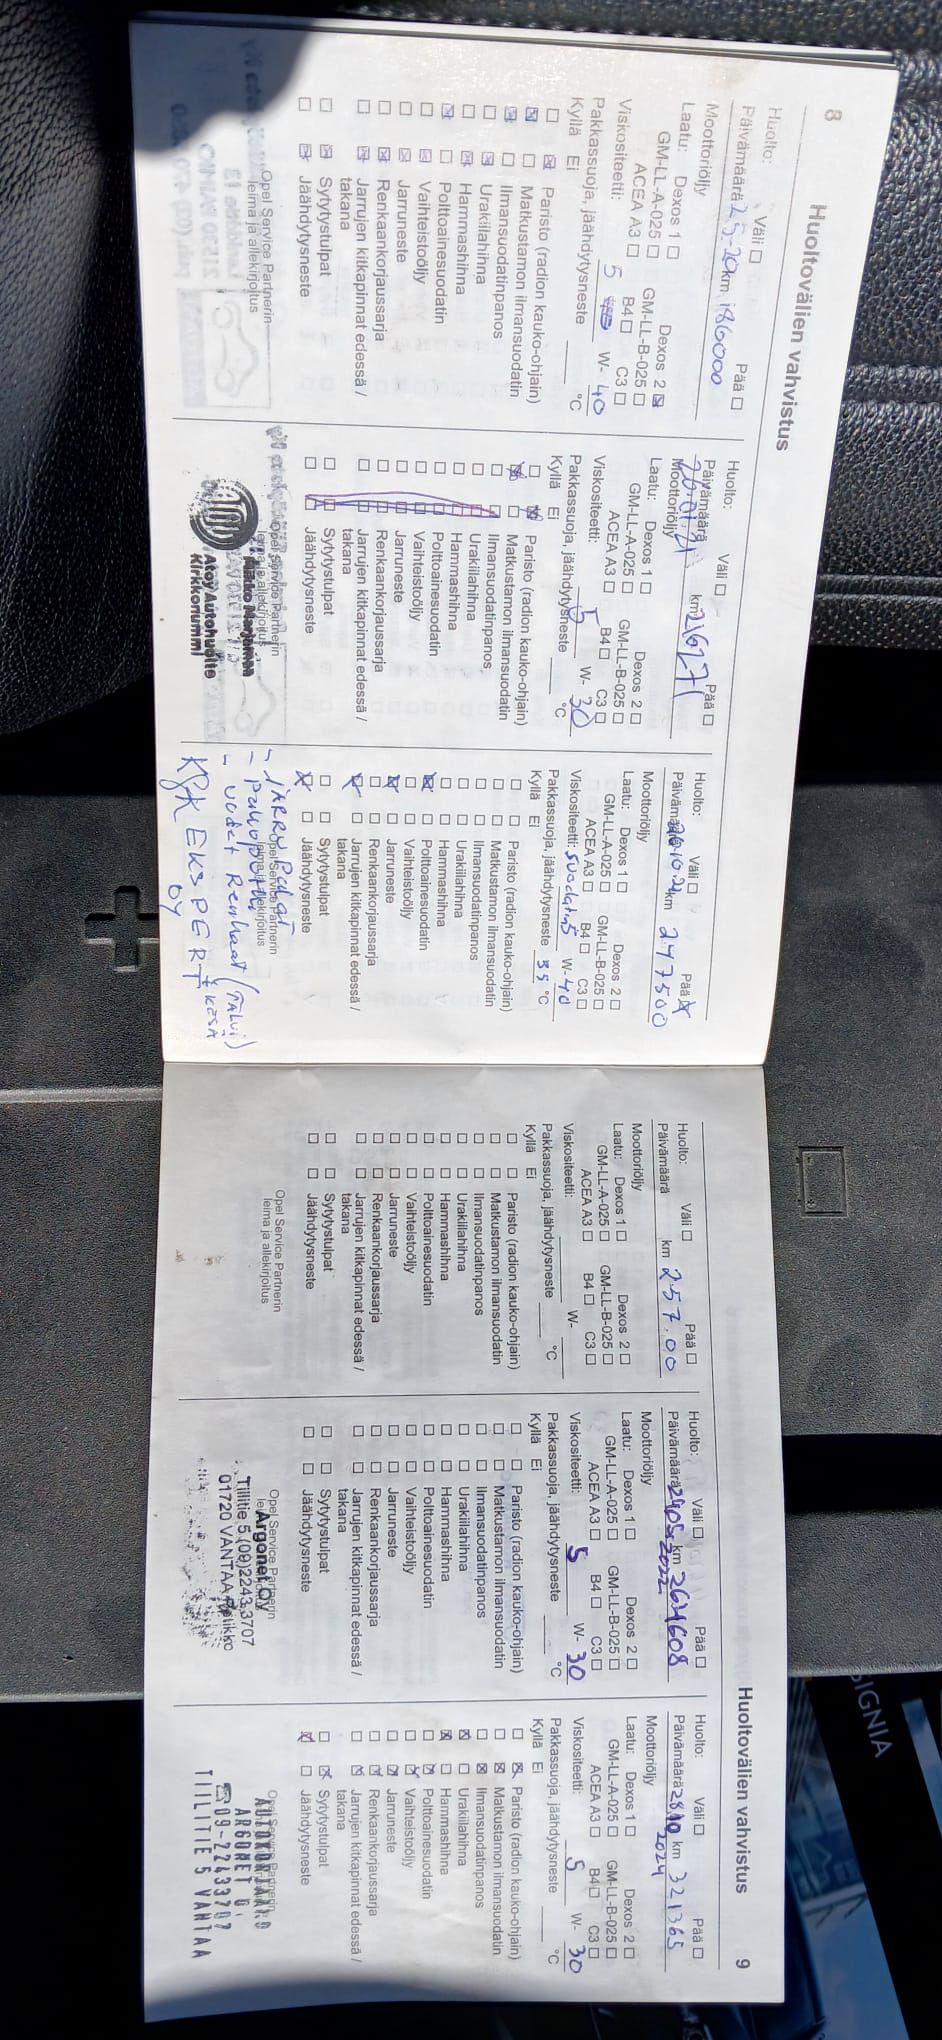 8
Huoltovälien vahvistus
Huolto: Väli Pää
Päivämäärä 25-20 km 186000
Moottoriöljy
Laatu: Dexos 1 Dexos 2
GM-LL-A-025 GM-LL-B-025
ACEA A3 B4 C3
Viskositeetti: 5 W- 40
Pakkassuoja, jäähdytysneste °C
Kyllä Ei
Paristo (radion kauko-ohjain)
Matkustamon ilmansuodatin
Ilmansuodatinpanos
Urakiilahihna
Hammashihna
Polttoainesuodatin
Vaihteistoöljy
Jarruneste
Renkaankorjaussarja
Jarrujen kitkapinnat edessä /
takana
Sytytystulpat
Jäähdytysneste
Opel Service Partnerin
leima ja allekirjoitus
Huolto: Väli Pää
Päivämäärä 20.01.21 km 216271
Moottoriöljy
Laatu: Dexos 1 Dexos 2
GM-LL-A-025 GM-LL-B-025
ACEA A3 B4 C3
Viskositeetti: 5 W- 30
Pakkassuoja, jäähdytysneste °C
Kyllä Ei
Paristo (radion kauko-ohjain)
Matkustamon ilmansuodatin
Ilmansuodatinpanos
Urakiilahihna
Hammashihna
Polttoainesuodatin
Vaihteistoöljy
Jarruneste
Renkaankorjaussarja
Jarrujen kitkapinnat edessä /
takana
Sytytystulpat
Jäähdytysneste
Opel Service Partnerin
leima ja allekirjoitus
Atoy Autohuolto
Kirkkonummi
Huolto: Väli Pää
Päivämäärä km 247500
Moottoriöljy
Laatu: Dexos 1 Dexos 2
GM-LL-A-025 GM-LL-B-025
ACEA A3 B4 C3
Viskositeetti: suodatin 5 W- 40
Pakkassuoja, jäähdytysneste 35 °C
Kyllä Ei
Paristo (radion kauko-ohjain)
Matkustamon ilmansuodatin
Ilmansuodatinpanos
Urakiilahihna
Hammashihna
Polttoainesuodatin
Vaihteistoöljy
Jarruneste
Renkaankorjaussarja
Jarrujen kitkapinnat edessä /
takana
Sytytystulpat
Jäähdytysneste
Opel Service Partnerin
leima ja allekirjoitus
- JARRUPALAT
- uudet Renkaat (TALVI)
+ KESÄ
EKSPERT
OY
Huoltovälien vahvistus
9
Huolto: Väli Pää
Päivämäärä km 257.00
Moottoriöljy
Laatu: Dexos 1 Dexos 2
GM-LL-A-025 GM-LL-B-025
ACEA A3 B4 C3
Viskositeetti: W-
Pakkassuoja, jäähdytysneste °C
Kyllä Ei
Paristo (radion kauko-ohjain)
Matkustamon ilmansuodatin
Ilmansuodatinpanos
Urakiilahihna
Hammashihna
Polttoainesuodatin
Vaihteistoöljy
Jarruneste
Renkaankorjaussarja
Jarrujen kitkapinnat edessä /
takana
Sytytystulpat
Jäähdytysneste
Opel Service Partnerin
leima ja allekirjoitus
Huolto: Väli Pää
Päivämäärä 24.05.2022 km 264608
Moottoriöljy
Laatu: Dexos 1 Dexos 2
GM-LL-A-025 GM-LL-B-025
ACEA A3 B4 C3
Viskositeetti: 5 W- 30
Pakkassuoja, jäähdytysneste °C
Kyllä Ei
Paristo (radion kauko-ohjain)
Matkustamon ilmansuodatin
Ilmansuodatinpanos
Urakiilahihna
Hammashihna
Polttoainesuodatin
Vaihteistoöljy
Jarruneste
Renkaankorjaussarja
Jarrujen kitkapinnat edessä /
takana
Sytytystulpat
Jäähdytysneste
Opel Service Partnerin
Argonet Oy
Tiilitie 5 (09)2243 3707
01720 VANTAA Petikko
Huolto: Väli Pää
Päivämäärä 28.10 2024 km 321365
Moottoriöljy
Laatu: Dexos 1 Dexos 2
GM-LL-A-025 GM-LL-B-025
ACEA A3 B4 C3
Viskositeetti: 5 W- 30
Pakkassuoja, jäähdytysneste °C
Kyllä Ei
Paristo (radion kauko-ohjain)
Matkustamon ilmansuodatin
Ilmansuodatinpanos
Urakiilahihna
Hammashihna
Polttoainesuodatin
Vaihteistoöljy
Jarruneste
Renkaankorjaussarja
Jarrujen kitkapinnat edessä /
takana
Sytytystulpat
Jäähdytysneste
AUTOKORJAAMO
ARGONET
☎09-22433707
TIILITIE 5 VANTAA
SIGNIA